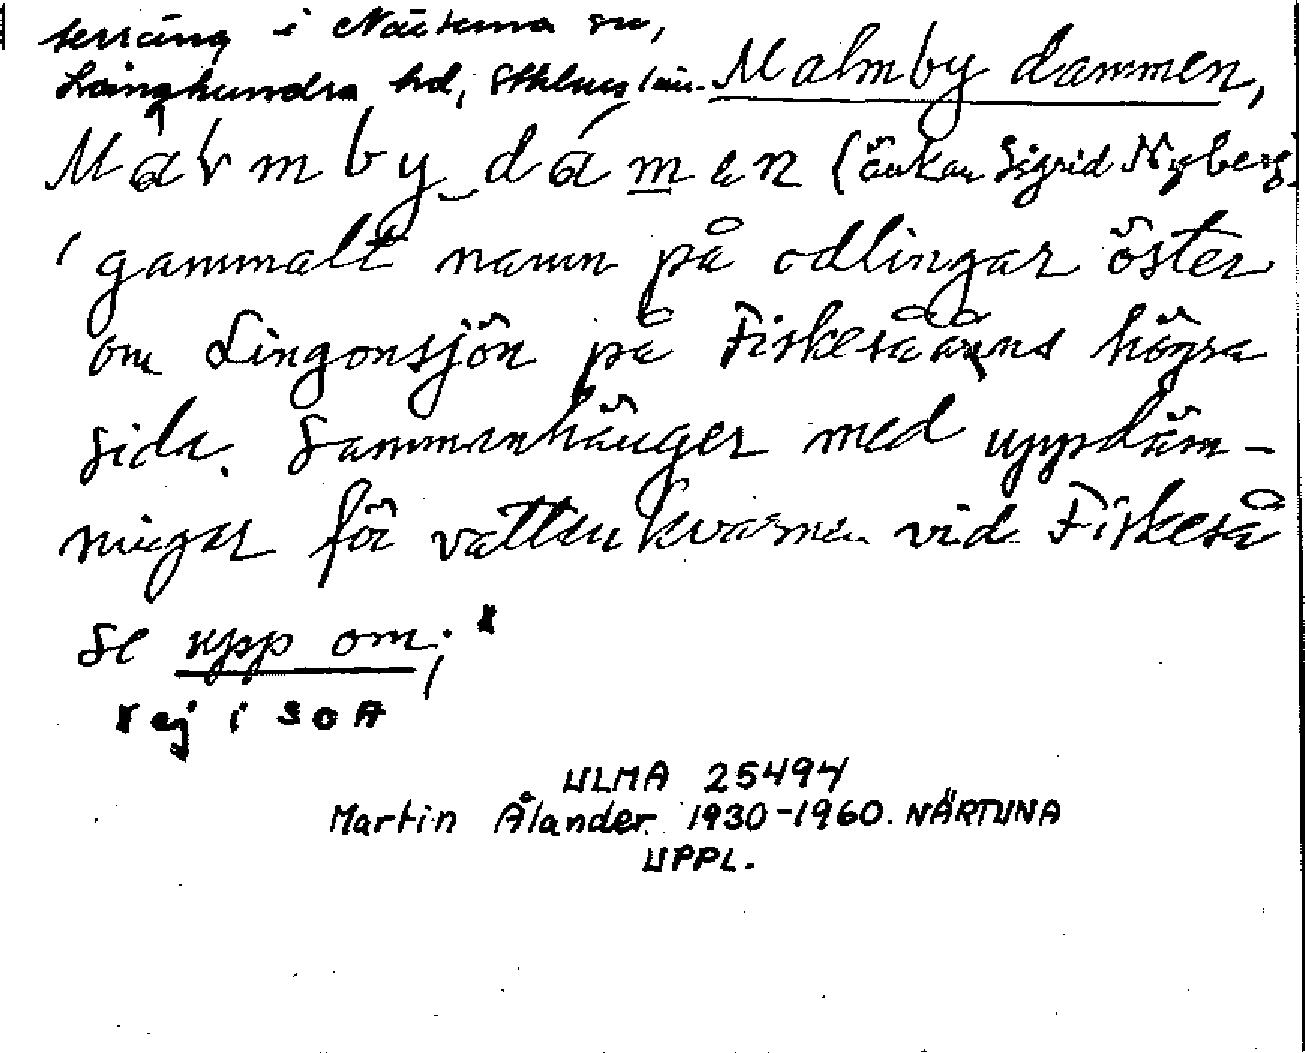 terräng i Närtuna sn,
Långhundra hd, Sthlms län. Malmby dammen,
Mårmby dámen (änkan Sigrid Nyberg)
gammalt namn på odlingar öster
om Lingonsjön på Fiskesåååns högra
sida. Sammanhänger med uppdäm-
ningar för vattenkvarnen vid Fiskeså
se upp om; x
x ej i SOA
ULMA 25494
Martin Ålander 1930-1960. NÄRTUNA
UPPL.